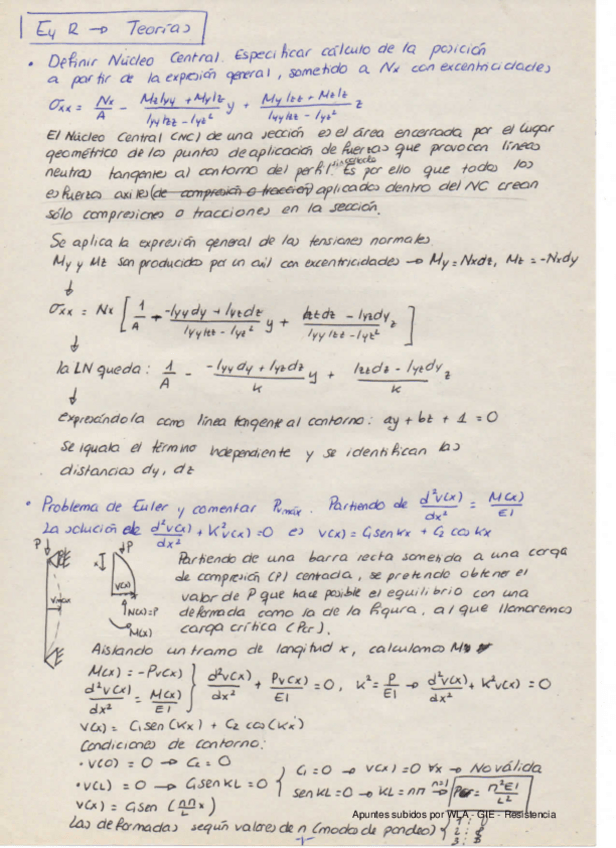 E y R → Teorías
• Definir Núcleo Central. Especificar cálculo de la posición
a partir de la expresión general, sometido a Nx con excentricidades
σxx = Nx/A - (Mz Iyy + My Iz)/(Iyy Izz - Iyz²) y + (My Izz + Mz Iz)/(Iyy Izz - Iyz²) z
El Núcleo Central (NC) de una sección es el área encerrada por el lugar
geométrico de los puntos de aplicación de fuerzas que provocan líneas
neutras tangentes al contorno del perfil. Es por ello que todos los
esfuerzos axiles (de compresión o tracción) aplicados dentro del NC crean
sólo compresiones o tracciones en la sección.
Se aplica la expresión general de las tensiones normales.
My y Mz son producidos por un axil con excentricidades → My = Nxdz, Mz = -Nxdy
↓
σxx = Nx [ 1/A + (-Iyydy + Iyzdz)/(Iyy Izz - Iyz²) y + (Izzdz - Iyzdy)/(Iyy Izz - Iyz²) z ]
↓
la LN queda: 1/A - (-Iyydy + Iyzdz)/K y + (Izzdz - Iyzdy)/K z
↓
expresándola como línea tangente al contorno: ay + bz + 1 = 0
Se iguala el término independiente y se identifican las
distancias dy, dz
• Problema de Euler y comentar Pmáx. Partiendo de d²v(x)/dx² = M(x)/EI
La solución de d²v(x)/dx² + K²v(x) = 0 es v(x) = C₁ sen Kx + C₂ cos Kx
P
x P v(x) N(x)=P M(x)
Partiendo de una barra recta sometida a una carga
de compresión (P) centrada, se pretende obtener el
valor de P que hace posible el equilibrio con una
deformada como la de la figura, al que llamaremos
carga crítica (Pcr).
Aislando un tramo de longitud x, calculamos M
M(x) = -Pv(x)
d²v(x)/dx² = M(x)/EI } d²v(x)/dx² + Pv(x)/EI = 0, K² = P/EI → d²v(x)/dx² + K²v(x) = 0
v(x) = C₁ sen (Kx) + C₂ cos (Kx)
Condiciones de contorno:
• v(0) = 0 → C₂ = 0
• v(L) = 0 → C₁ sen KL = 0 { C₁ = 0 → v(x) = 0 ∀x → No válida
sen KL = 0 → KL = nπ n=1 → Pcr = π²EI/L²
v(x) = C₁ sen (nπ/L x)
Las deformadas según valores de n (modos de pandeo) { 1: 2: 3:
Apuntes subidos por WLA - GIE - Resistencia
-1-